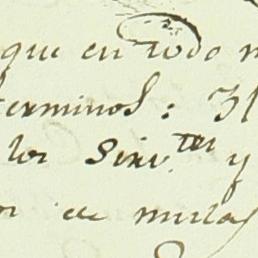 que en todo
terminos:
los Sirv.tes y
de mulas